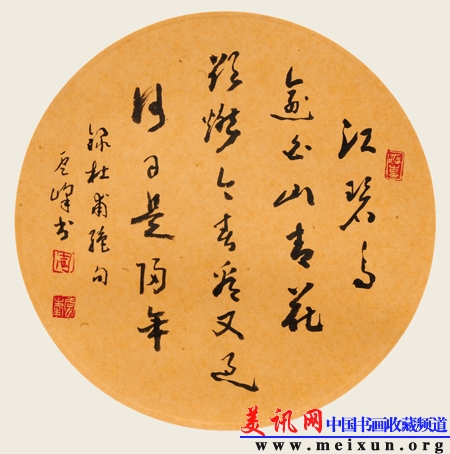 江碧鸟
逾白山青花
欲燃今春看又过
何日是归年
录杜甫绝句
峰书
美讯网中国书画收藏频道
www.meixun.org